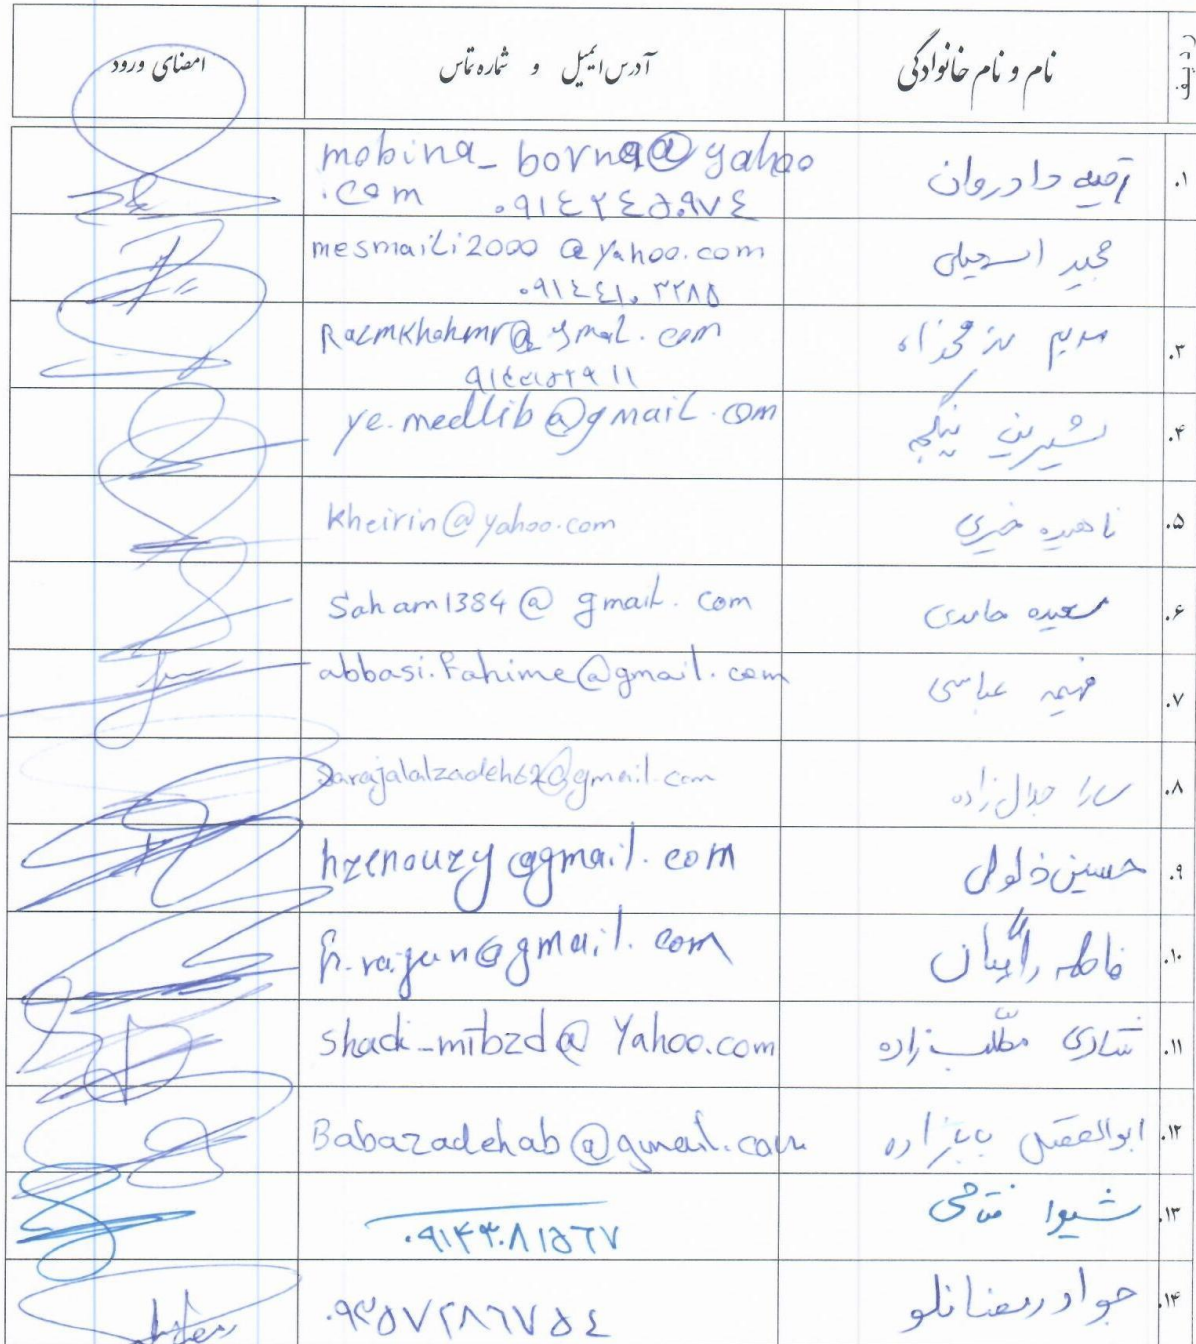 ردیف نام و نام خانوادگی آدرس ایمیل و شماره تماس امضای ورود
۱. دادروان mobina_borna@yahoo
.com ۰۹۱٤۲٤۵۰۹۷٤
مجید اسمعیلی mesmaili2000@yahoo.com
۰۹۱٤٤۱۰۳۲۸۵
۳. مریم Razmkhahmr@gmail.com
۴. شیرین ye.medlib@gmail.com
۵. ناهیده خیری kheirin@yahoo.com
۶. سعیده حامدی Saham1384@gmail.com
۷. فهیمه عباسی abbasi.fahime@gmail.com
۸. سارا جلال زاده sarajalalzadeh62@gmail.com
۹. حسین hzenouzy@gmail.com
۱۰. فاطمه @gmail.com
۱۱. شادی مطلّب زاده shadi_mtbzd@Yahoo.com
۱۲. ابوالفضل بابازاده Babazadehab@gmail.com
۱۳. شیوا فتاحی ۰۹۱۴۳۰۸۱۵٦۷
۱۴. جواد رمضانلو